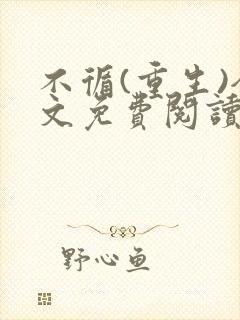 不循(重生)
文免费閱讀
野心鱼